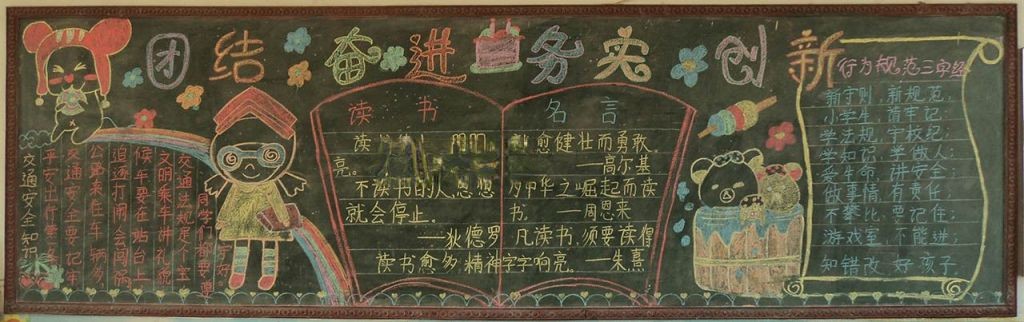 团结 奋进 务实 创新
交通安全知识
交通法规是个宝
同学们都要
文明乘车讲礼貌
候车要在站台上
追逐打闹会闯祸
公路来往车辆多
交通安全要记牢
平安出行
读书
名言
亮。
不读书的人,思想
就会停止。
——狄德罗
读书愈多,精神
愈健壮而勇敢
——高尔基
中华之崛起而读
书。——周恩来
凡读书,须要读得
字字响亮。——朱熹
行为规范三字经
新守则,新规范,
小学生,请牢记;
学法规,守校纪;
学知识,学做人;
爱生命,讲安全;
做事情,有责任;
不攀比,要记住;
游戏室,不能进;
知错改,好孩子